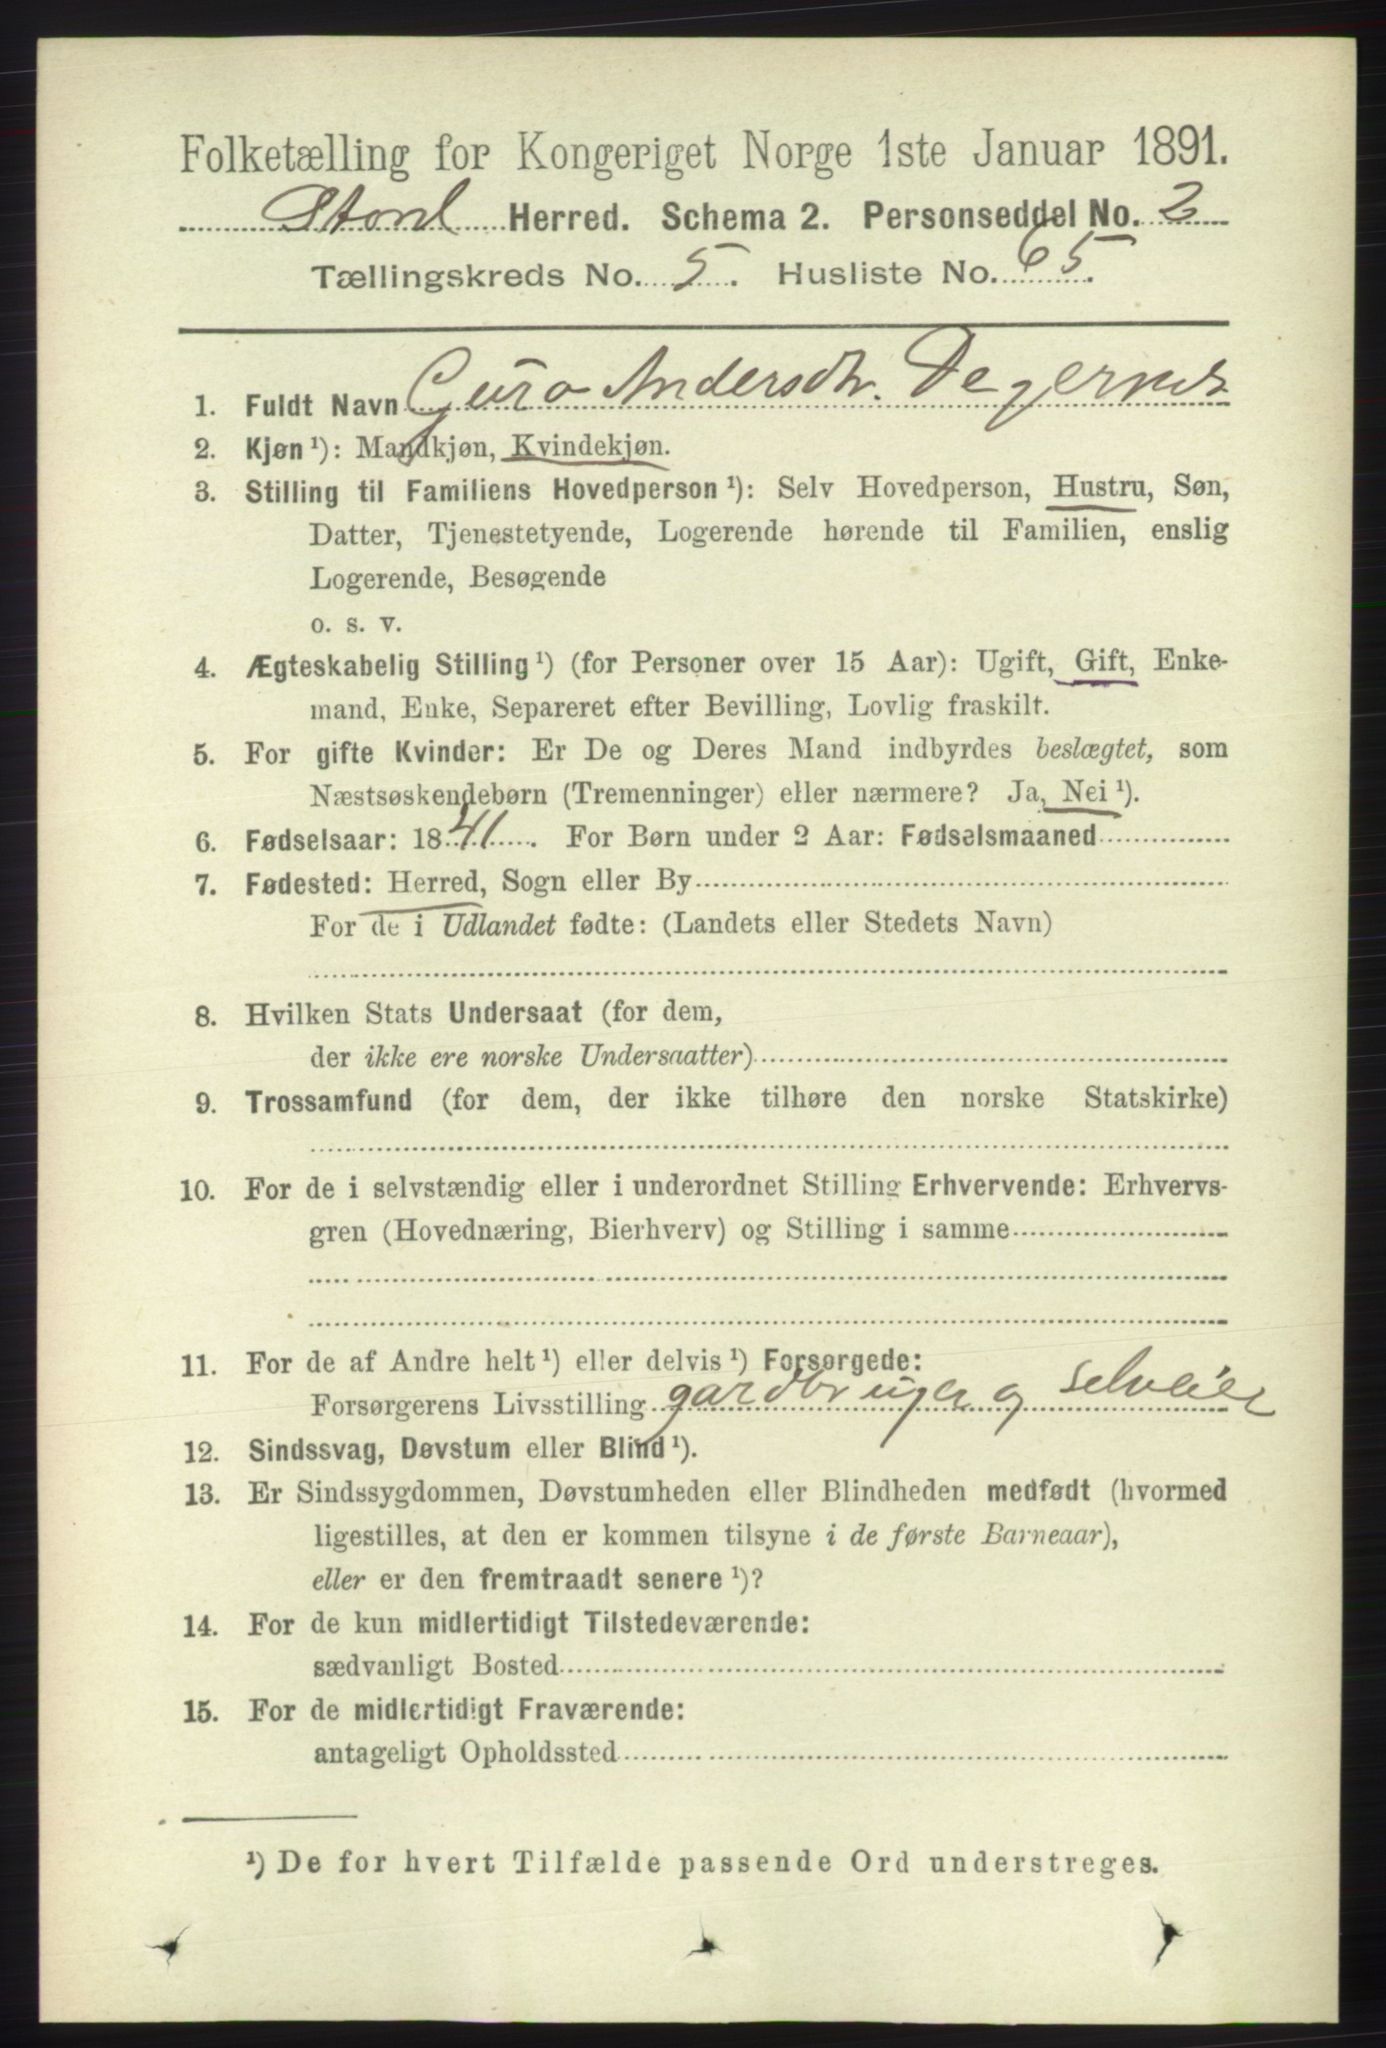 Folketælling for Kongeriget Norge 1ste Januar 1891.
Stord Herred. Schema 2. Personseddel No. 2
Tællingskreds No. 5. Husliste No. 65.
1. Fuldt Navn Guro Andersdtr. Degernes
2. Kjøn¹): Mandkjøn, Kvindekjøn.
3. Stilling til Familiens Hovedperson¹): Selv Hovedperson, Hustru, Søn,
Datter, Tjenestetyende, Logerende hørende til Familien, enslig
Logerende, Besøgende
o. s. v.
4. Ægteskabelig Stilling¹) (for Personer over 15 Aar): Ugift, Gift, Enke-
mand, Enke, Separeret efter Bevilling, Lovlig fraskilt.
5. For gifte Kvinder: Er De og Deres Mand indbyrdes beslægtet, som
Næstsøskendebørn (Tremenninger) eller nærmere? Ja, Nei¹).
6. Fødselsaar: 1841. For Børn under 2 Aar: Fødselsmaaned
7. Fødested: Herred, Sogn eller By
For de i Udlandet fødte: (Landets eller Stedets Navn)
8. Hvilken Stats Undersaat (for dem,
der ikke ere norske Undersaatter)
9. Trossamfund (for dem, der ikke tilhøre den norske Statskirke)
10. For de i selvstændig eller i underordnet Stilling Erhvervende: Erhvervs-
gren (Hovednæring, Bierhverv) og Stilling i samme
11. For de af Andre helt¹) eller delvis¹) Forsørgede:
Forsørgerens Livsstilling gardbruger og selveier
12. Sindssvag, Døvstum eller Blind¹).
13. Er Sindssygdommen, Døvstumheden eller Blindheden medfødt (hvormed
ligestilles, at den er kommen tilsyne i de første Barneaar),
eller er den fremtraadt senere¹)?
14. For de kun midlertidigt Tilstedeværende:
sædvanligt Bosted
15. For de midlertidigt Fraværende:
antageligt Opholdssted
¹) De for hvert Tilfælde passende Ord understreges.